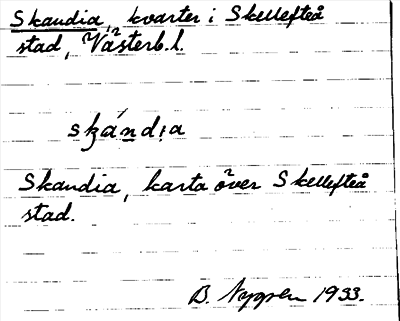 Skandia, kvarter i Skellefteå
stad, Västerb. l.
skándia
Skandia, karta över Skellefteå
stad.
B. 1933.